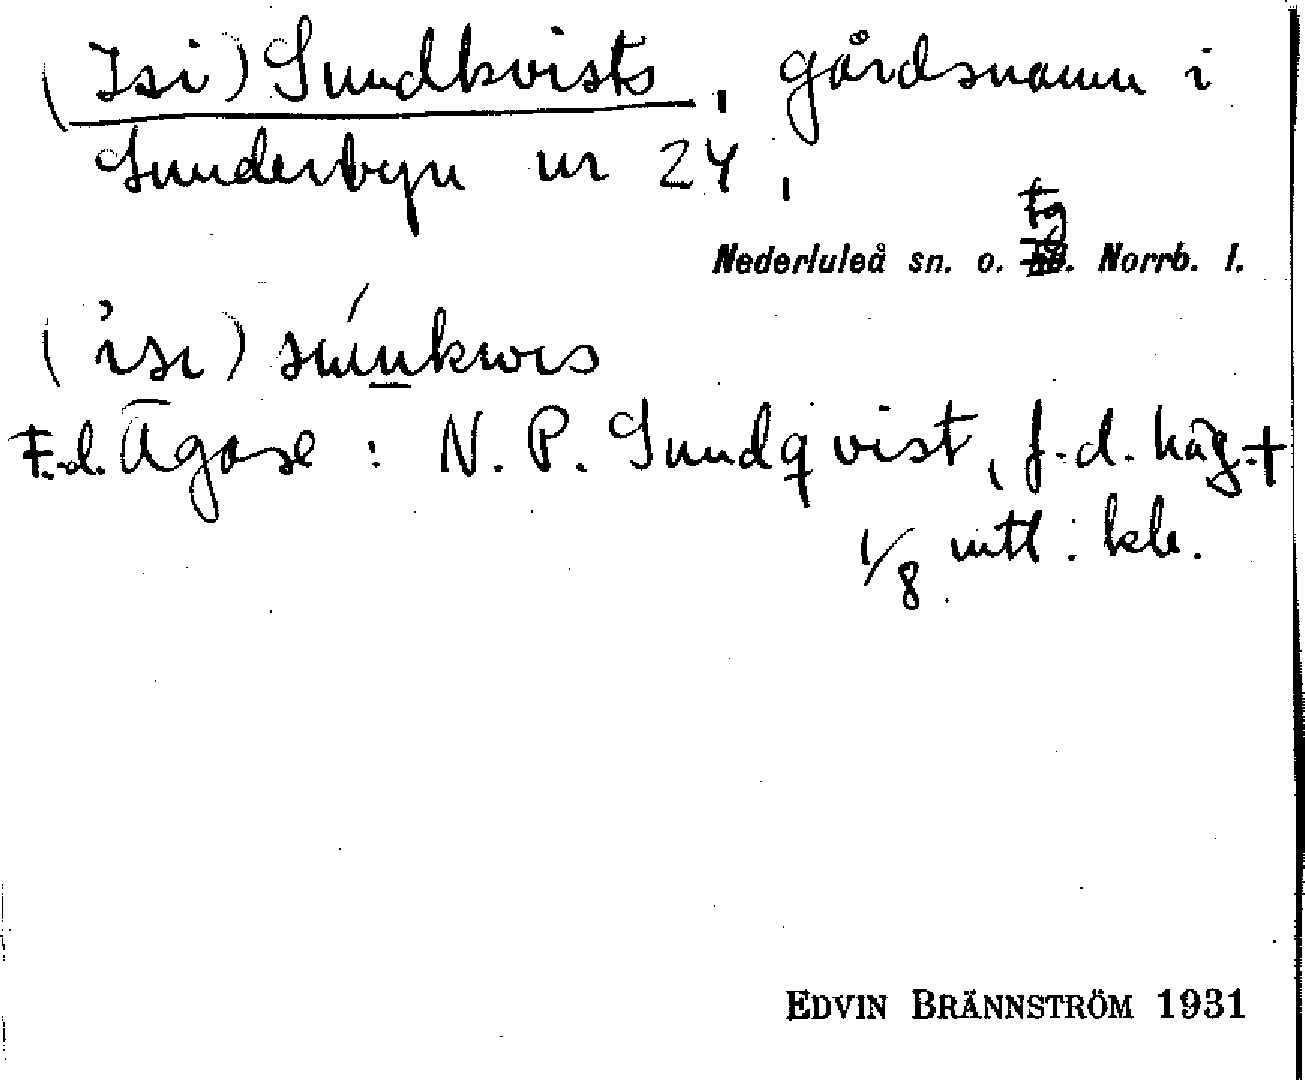 (Isi) Sundkvists, gårdsnamn i
Sunderbyn nr 24,
Nederluleå sn. o. tg. Norrb. l.
('isı) súnkwıs
F.d. Ägare: N. P. Sundqvist, f.d. häg. +
1/8 mtl: kr.
EDVIN BRÄNNSTRÖM 1931